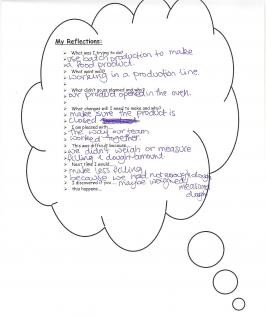 My Reflections:
➢ What was I trying to do?
use batch production to make
➢ a food product.
➢ What went well?
➢ working in a production line.
➢ What didn't go as planned and why?
➢ our product opened in the oven.
➢ What changes will I need to make and why?
➢ make sure the product is
➢ closed
➢ I am pleased with....
➢ the way our team
➢ worked together.
➢ This was difficult because...
➢ we didn't weigh or measure
➢ filling & dough amount.
➢ Next time I would....
➢ make less filling
➢ because we had not enough dough
➢ I discovered if you.... maybe weighed/
➢ this happens.... measured
dough